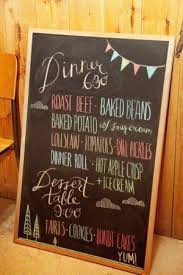 Dinner
630
ROAST BEEF · BAKED BEANS
BAKED POTATO w/ Sour cream
COLESLAW · TOMATOES · DILL PICKLES
DINNER ROLL · HOT APPLE CRISP
+ ICE CREAM
Dessert
table
900
TARTS · COOKIES · BUNDT CAKES
YUM!